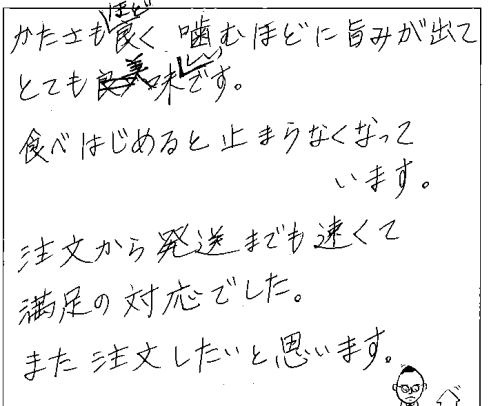 かたさもほど良く 噛むほどに旨みが出て
とても美味しいです。
食べはじめると止まらなくなって
います。
注文から発送までも速くて
満足の対応でした。
また注文したいと思います。